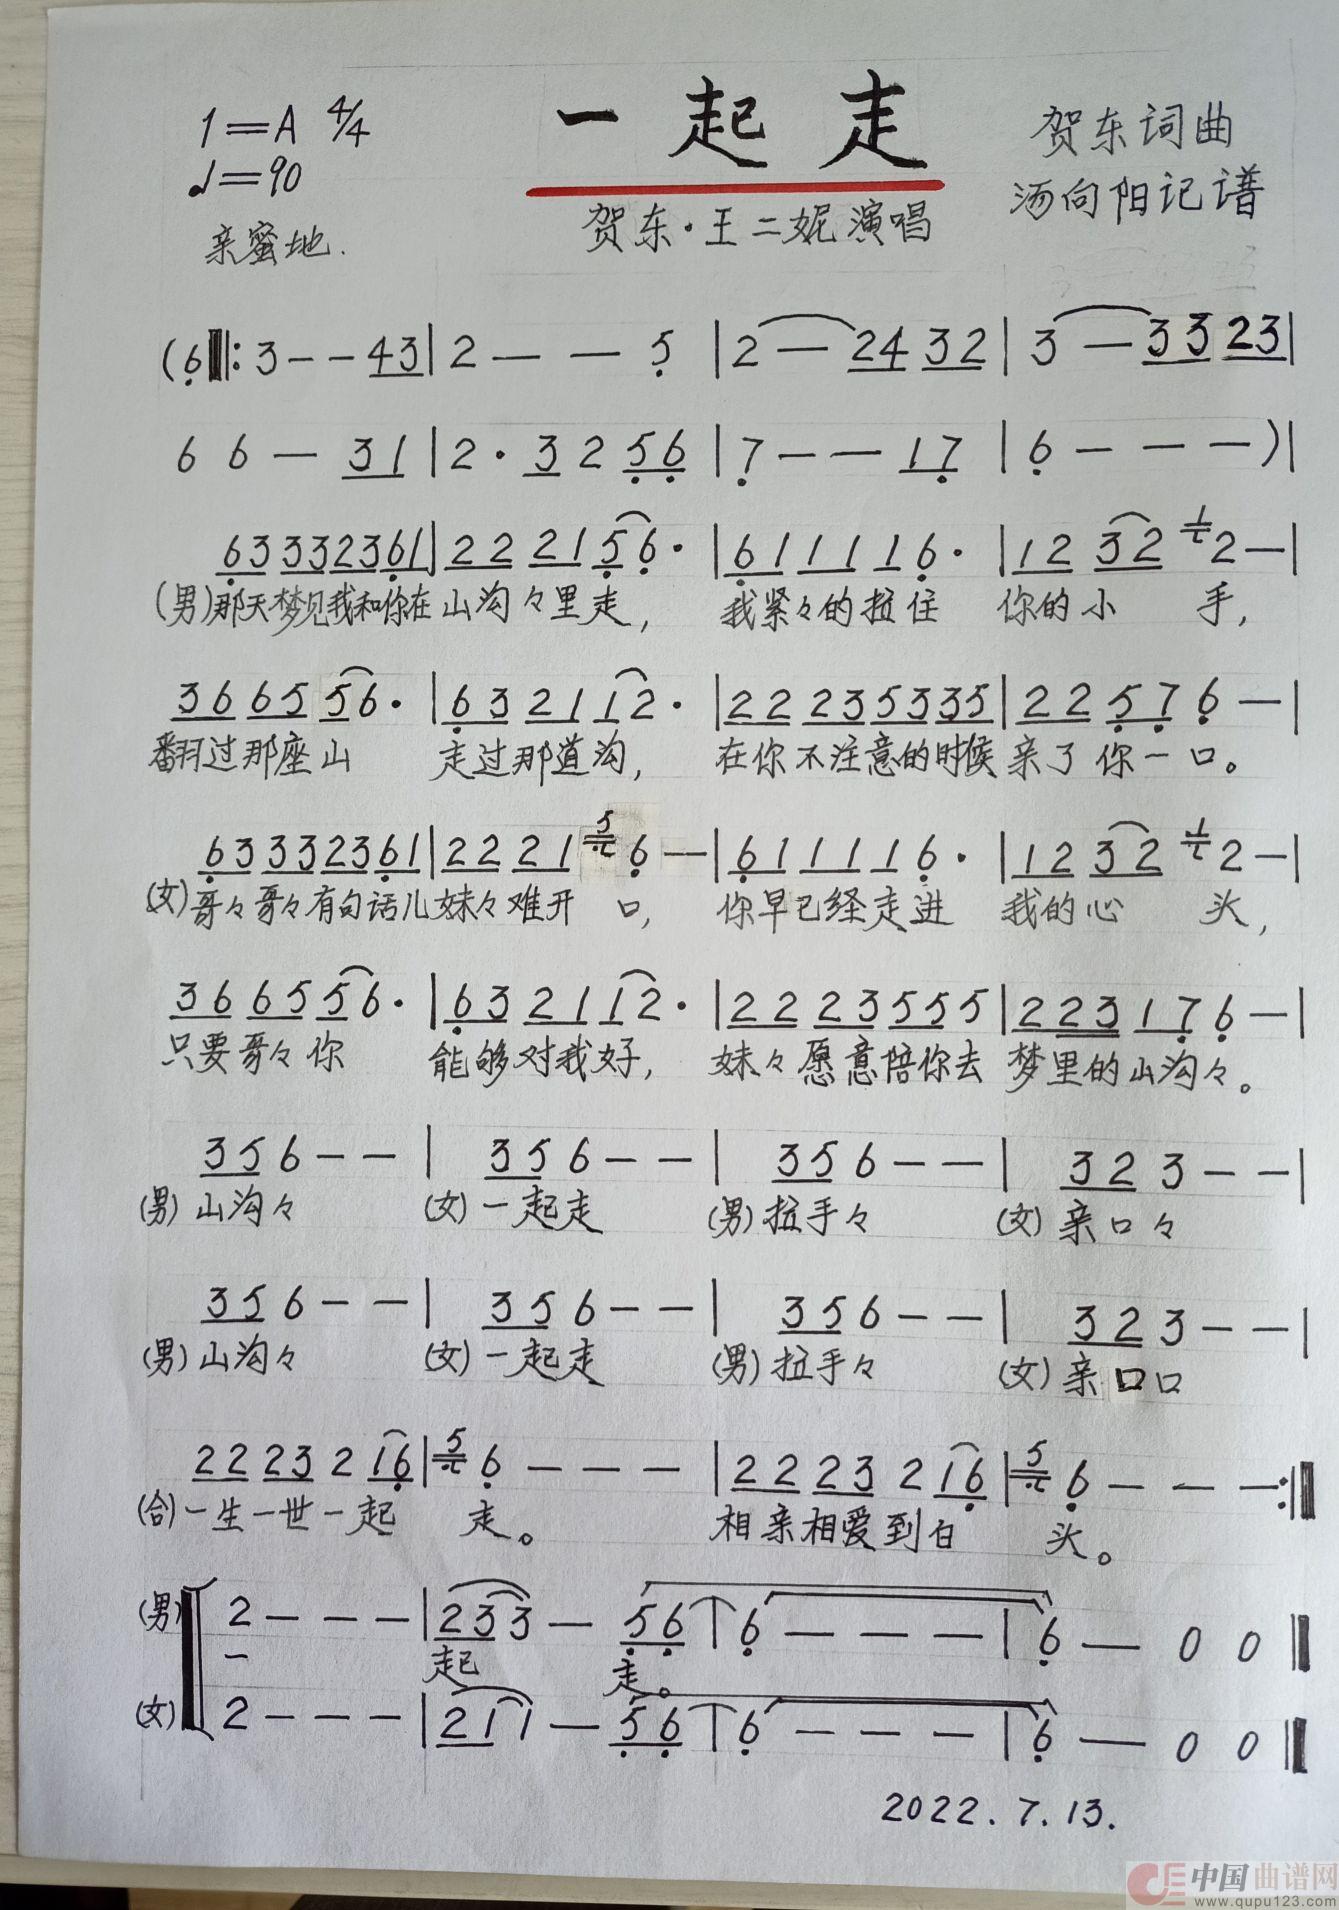 1=A 4/4
♩=90
亲蜜地.
一起走
贺东·王二妮演唱
贺东词曲
汤向阳记谱
(6‖: 3 - - 43 | 2 - - 5 | 2 - 24 32 | 3 - 33 23 |
6 6 - 31 | 2 · 3 2 56 | 7 - - 17 | 6 - - - ) |
63 33 23 61 | 22 21 56· | 61 11 16· | 12 32 1 2 - |
(男)那天梦见我和你在山沟々里走, 我紧々的拉住 你的小 手,
36 65 56· | 63 21 12· | 22 23 53 35 | 22 57 6 - |
翻过那座山 走过那道沟, 在你不注意的时候 亲了你一口。
63 33 23 61 | 22 21 5 6 - | 61 11 16· | 12 32 1 2 - |
(女)哥々哥々有句话儿妹々难开 口, 你早已经走进 我的心 头,
36 65 56· | 63 21 12· | 22 23 55 5 | 223 17 6 - |
只要哥々你 能够对我好, 妹々愿意陪你去 梦里的山沟々。
35 6 - - | 35 6 - - | 35 6 - - | 32 3 - - |
(男)山沟々 (女)一起走 (男)拉手々 (女)亲口々
35 6 - - | 35 6 - - | 35 6 - - | 32 3 - - |
(男)山沟々 (女)一起走 (男)拉手々 (女)亲口口
22 23 2 16 | 5 6 - - - | 22 23 2 16 | 5 6 - - - :‖
(合)一生一世一起 走。 相亲相爱到白 头。
(男) 2 - - - | 23 3 - 56 | 6 - - - | 6 - 0 0 ‖
一 起 走。
(女) 2 - - - | 21 1 - 56 | 6 - - - | 6 - 0 0 ‖
2022.7.13.
中国曲谱网
www.qupu123.com